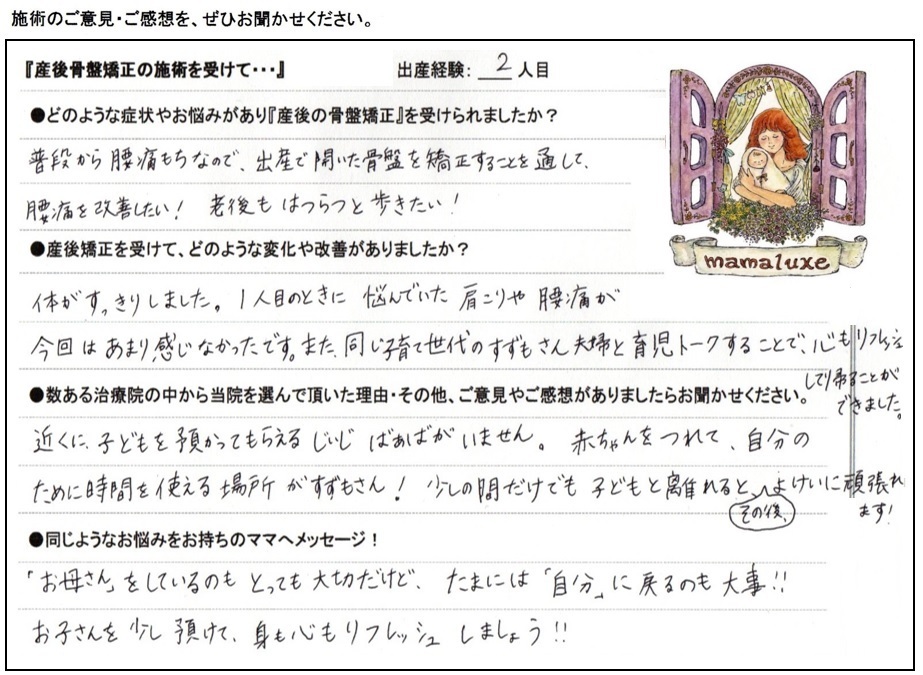 施術のご意見・ご感想を、ぜひお聞かせください。
『産後骨盤矯正の施術を受けて・・・』 出産経験: 2 人目
●どのような症状やお悩みがあり『産後の骨盤矯正』を受けられましたか？
普段から腰痛もちなので、出産で開いた骨盤を矯正することを通して、
腰痛を改善したい！ 老後もはつらつと歩きたい！
mamaluxe
●産後矯正を受けて、どのような変化や改善がありましたか？
体がすっきりしました。1人目のときに悩んでいた肩こりや腰痛が
今回はあまり感じなかったです。また、同じ子育て世代のすずもさん夫婦と育児トークすることで、心もリフレッシュ
して帰ることが
できました。
●数ある治療院の中から当院を選んで頂いた理由・その他、ご意見やご感想がありましたらお聞かせください。
近くに、子どもを預かってもらえるじいじばぁばがいません。赤ちゃんをつれて、自分の
ために時間を使える場所がすずもさん！ 少しの間だけでも子どもと離れると、その後、よけいに頑張れ
ます！
●同じようなお悩みをお持ちのママへメッセージ！
「お母さん」をしているのもとっても大切だけど、たまには「自分」に戻るのも大事!!
お子さんを少し預けて、身も心もリフレッシュしましょう!!